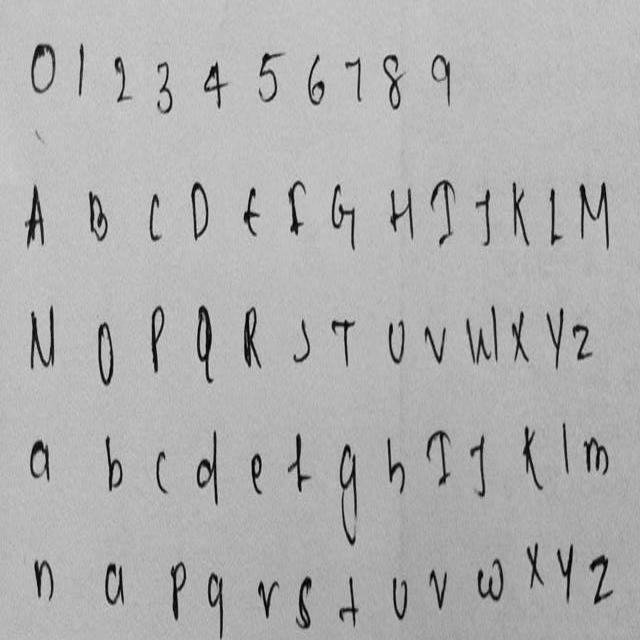 0 1 2 3 4 5 6 7 8 9
A B C D E F G H I J K L M
N O P Q R S T U V W X Y Z
a b c d e f g h I J K l m
n a p q r s t u v w x y z